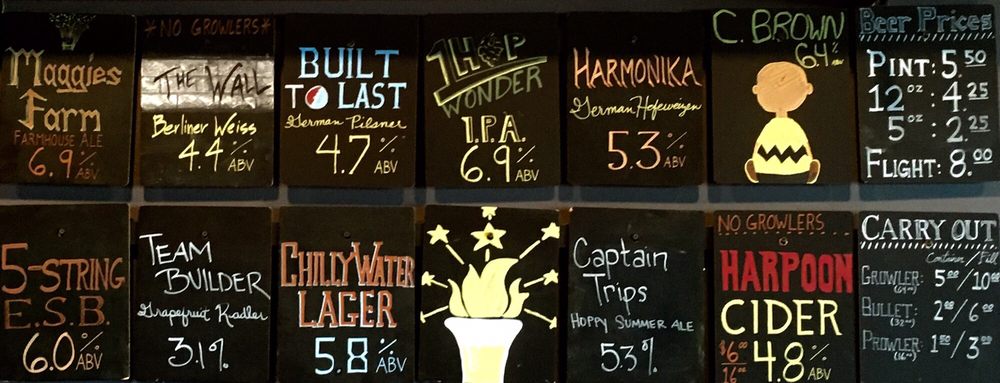 Maggies
Farm
FARMHOUSE ALE
6.9% ABV
*NO GROWLERS*
THE WALL
Berliner Weiss
4.4% ABV
BUILT
TO LAST
German Pilsner
4.7% ABV
1 HOP
WONDER
I.P.A.
6.9% ABV
HARMONIKA
German Hefeweizen
5.3% ABV
C. BROWN
6.4%
Beer Prices
PINT: 5.50
12oz: 4.25
5oz: 2.25
FLIGHT: 8.00
5-STRING
E.S.B.
6.0% ABV
TEAM
BUILDER
Grapefruit Radler
3.1%
CHILLY WATER
LAGER
5.8% ABV
Captain
Trips
HOPPY SUMMER ALE
5.3%
NO GROWLERS
HARPOON
CIDER
$6.00
16oz
4.8% ABV
CARRY OUT
Container / Fill
GROWLER: 5.00/10.00
(64oz)
BULLET: 2.00/6.00
(32oz)
PROWLER: 1.50/3.00
(16oz)